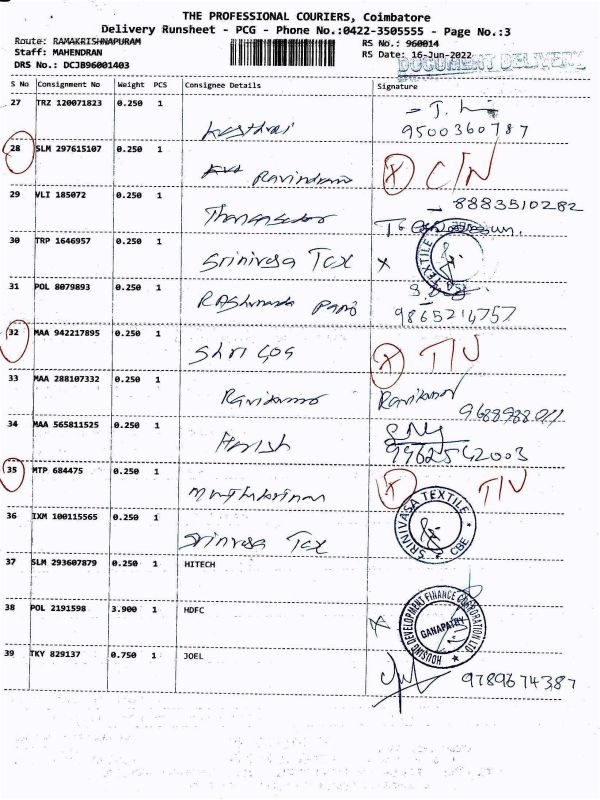 THE PROFESSIONAL COURIERS, Coimbatore
Delivery Runsheet - PCG - Phone No.:0422-3505555 - Page No.:3
Route: RAMAKRISHNAPURAM RS No.: 960014
Staff: MAHENDRAN RS Date: 16-Jun-2022
DRS No.: DCJB96001403 DOCUMENT DELIVERY
S No Consignment No Weight PCS Consignee Details Signature
27 TRZ 120071823 0.250 1
9500360787
28 SLM 297615107 0.250 1 Ravindran X C/N
29 VLI 185072 0.250 1 8883510282
30 TRP 1646957 0.250 1 Srinivasa Tex X TEXTILE
31 POL 8079893 0.250 1
9865214757
32 MAA 942217895 0.250 1 Shri Gos X T/U
33 MAA 288107332 0.250 1 Ravikumar Ravikumar
34 MAA 565811525 0.250 1 Harish
9962542003
35 MTP 684475 0.250 1 X T/U
36 IXM 100115565 0.250 1 Srinivasa Tex SRINIVASA TEXTILE CBE
37 SLM 293607879 0.250 1 HITECH
38 POL 2191598 3.900 1 HDFC X HOUSING DEVELOPMENT FINANCE CORPORATION LTD GANAPATHY
39 TKY 829137 0.750 1 JOEL
9789674387